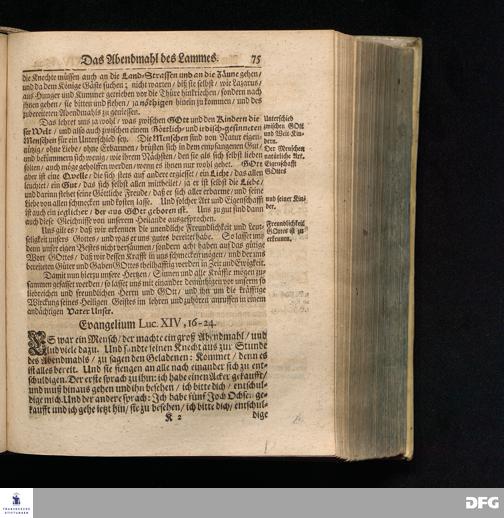 Das Abendmahl des Lammes. 75
die Knechte müssen auch an die Land-Strassen und an die Zäune gehen/
und da dem Könige Gäste suchen; nicht warten/ biß sie selbst/ wie Lazarus/
aus Hunger und Kummer genießen vor die Thüre hinkriechen/ sondern nach
ihnen gehen/ sie bitten und flehen/ ja nöthigen hinein zu kommen/ und des
zubereiteten Abendmahls zu geniessen.
Das lehret uns ja wohl/ was zwischen GOtt und den Kindern die-
ser Welt/ und also auch zwischen einem Göttlich- und irdisch-gesinneten
Menschen für ein Unterschied sey. Die Menschen sind von Natur eigen-
nützig/ ohne Liebe/ ohne Erbarmen/ brüsten sich in dem empfangenen Gut/
und bekümmern sich wenig/ wie ihrem Nächsten/ den sie als sich selbst lieben
solten/ auch möge geholffen werden/ wenn es ihnen nur wohl gehet. GOtt
aber ist eine Qvelle/ die sich stets auf andere ergiesset/ ein Licht/ das allen
leuchtet/ ein Gut/ das sich selbst allen mittheilet/ ja er ist selbst die Liebe/
und darinn stehet seine Göttliche Freude/ daß er sich aller erbarme/ und seine
Liebe von allen schmecken und kosten lasse. Und solcher Art und Eigenschafft
ist auch ein jeglicher/ der aus GOtt geboren ist. Uns zu gut sind dann
auch diese Gleichnisse von unserem Heilande ausgesprochen.
Uns gilt es/ daß wir erkennen die unendliche Freundlichkeit und Leut-
seligkeit unsers Gottes/ und was er uns gutes bereitet habe. So lasset uns
denn unser eigen Bestes nicht versäumen/ sondern acht haben auf das gütige
Wort GOttes/ daß wir dessen Krafft in uns schmecken mögen/ und der uns
bereiteten Güter und Gaben GOttes theilhafftig werden in Zeit und Ewigkeit.
Damit nun hierzu unsere Hertzen/ Sinnen und alle Kräffte mögen zu-
sammen gefasset werden/ so lasset uns mit einander demüthigen vor unserm so
liebreichen und freundlichen Herrn und GOtt/ und ihn um die kräfftige
Wirckung seines Heiligen Geistes im lehren und zuhören anruffen in einem
andächtigen Vater Unser.
Unterschied
zwischen GOtt
und Welt-Kin-
dern.
Der Menschen
natürliche Art.
Eigenschafft
GOttes
und seiner Kin-
der.
Freundlichkeit
GOttes ist zu
erkennen.
Evangelium Luc. XIV, 16-24.
ES war ein Mensch/ der machte ein groß Abendmahl/ und
lud viele dazu. Und sandte seinen Knecht aus zur Stunde
des Abendmahls/ zu sagen den Geladenen: Kommet/ denn es
ist alles bereit. Und sie fiengen an alle nach einander sich zu ent-
schuldigen. Der erste sprach zu ihm: ich habe einen Acker gekaufft/
und muß hinaus gehen und ihn besehen/ ich bitte dich/ entschul-
dige mich. Und der andere sprach: Ich habe fünf Joch Ochsen ge-
kaufft und ich gehe jetzt hin/ sie zu besehen/ ich bitte dich/ entschul-
K 2 dige
FRANCKESCHE
STIFTUNGEN
DFG